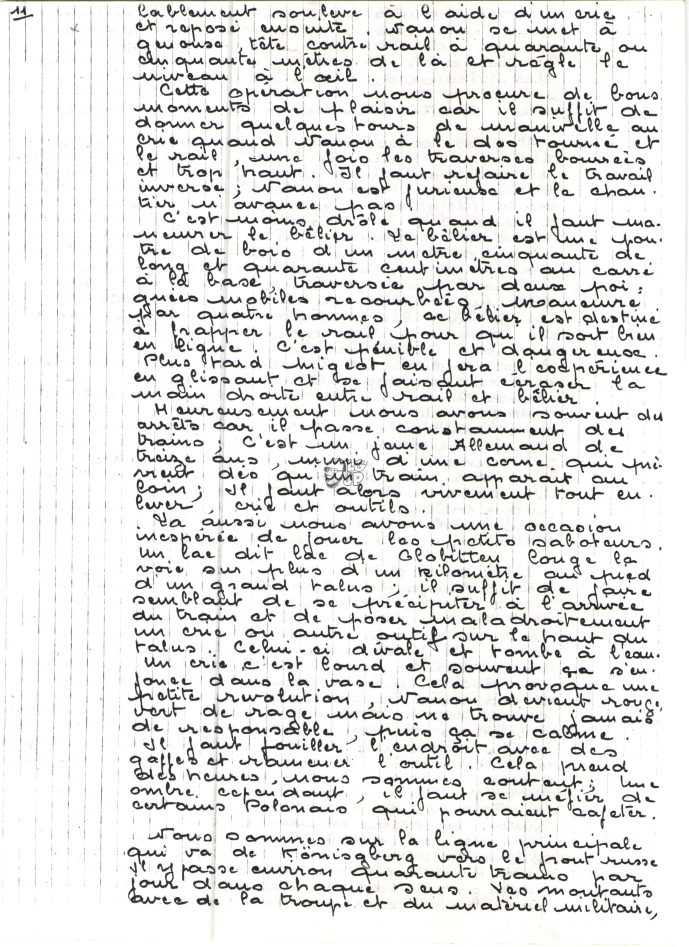 11
lablement soulevé à l'aide d'un cric
et reposé ensuite. Vanou se met à
genoux, tête contre rail à quarante ou
cinquante mètres de là et règle le
niveau à l'œil.
Cette opération nous procure de bons
moments de plaisir car il suffit de
donner quelques tours de manivelle au
cric quand Vanou à le dos tourné et
le rail, une fois les traverses bourrées
est trop haut. Il faut refaire le travail
inverse; Vanou est furieuse et le chan-
tier n'avance pas!
C'est moins drôle quand il faut ma-
neuvrer le bélier. Le bélier est une pou-
tre de bois d'un mètre cinquante de
long et quarante centimètres au carré
à la base, traversée par deux poi-
gnées mobiles recourbées, manœuvré
par quatre hommes, ce bélier est destiné
à frapper le rail pour qu'il soit bien
en ligne. C'est pénible et dangereuse.
Plus tard Migeot en fera l'expérience
en glissant et se faisant écraser la
main droite entre rail et bélier.
Heureusement nous avons souvent des
arrêts car il passe constamment des
trains; C'est un jeune Allemand de
treize ans, muni d'une corne qui pré-
vient dès qu'un train apparait au
loin; Il faut alors vivement tout en-
lever, cric et outils.
Là aussi nous avons une occasion
inespérée de jouer les petits saboteurs.
Un lac dit lac de Globitten longe la
voie sur plus d'un kilomètre au pied
d'un grand talus, il suffit de faire
semblant de se précipiter à l'arrivée
du train et de poser maladroitement
un cric ou autre outil sur le haut du
talus. Celui-ci dévale et tombe à l'eau.
Un cric c'est lourd et souvent ça s'en-
fonce dans la vase. Cela provoque une
petite révolution, Vanou devient rouge,
vert de rage mais ne trouve jamais
de responsable, puis ça se calme.
Il faut fouiller l'endroit avec des
gaffes et ramener l'outil. Cela prend
des heures, nous sommes content; Une
ombre cependant, il faut se méfier de
certains Polonais qui pourraient cafeter.
Nous sommes sur la ligne principale
qui va de Königsberg vers le front russe
Il y passe environ quarante trains par
jour dans chaque sens. Les montants
avec de la troupe et du matériel militaire,